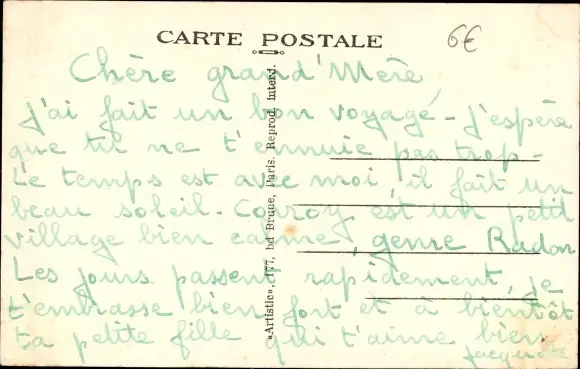 CARTE POSTALE
6€
Chère grand'Mère
J'ai fait un bon voyage - J'espère
que tu ne t'ennuie pas trop -
Le temps est avec moi, il fait un
beau soleil. Couroy est un petit
village bien calme, genre Radon
Les jours passent rapidement, je
t'embrasse bien fort et à bientôt
ta petite fille qui t'aime bien
«Artistic», 177, bd Brune, Paris. Reprod. Interd.